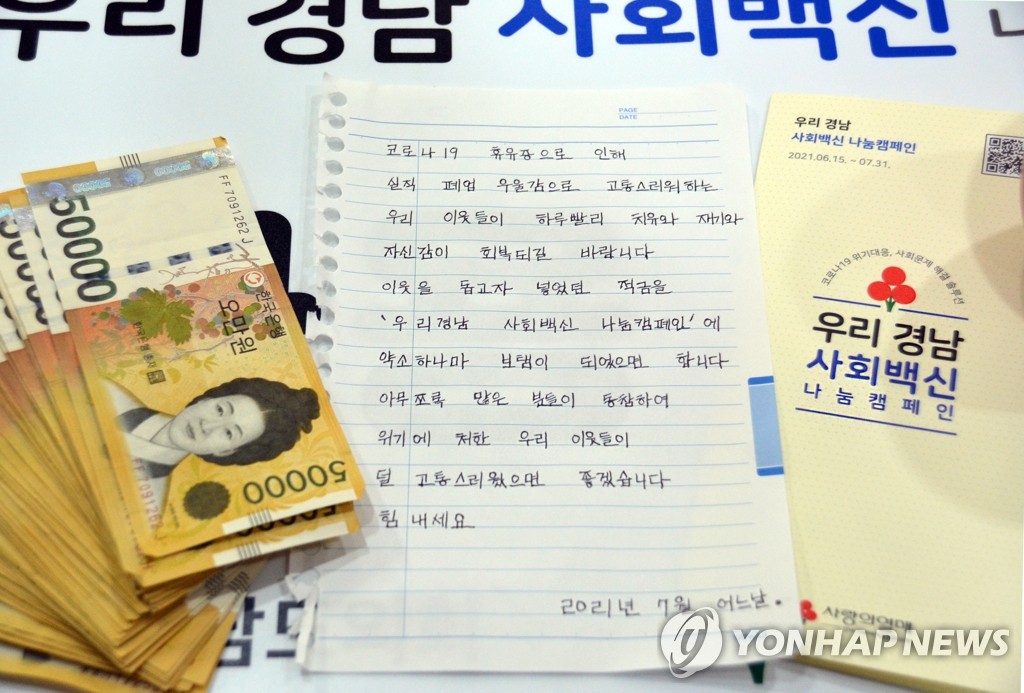 우리 경남 사회백신 나
PAGE
DATE
코로나19 휴유장으로 인해
실직 폐업 우울감으로 고통스러워하는
우리 이웃들이 하루빨리 치유와 재기와
자신감이 회복되길 바랍니다
이웃을 돕고자 넣었던 적금을
'우리경남 사회백신 나눔캠페인'에
약소하나마 보탬이 되었으면 합니다
아무쪼록 많은 분들이 동참하여
위기에 처한 우리 이웃들이
덜 고통스러웠으면 좋겠습니다
힘내세요
2021년 7월 어느날.
FF7091262J
50000
한국은행
오만원
50000
FF709126
우리 경남
사회백신 나눔캠페인
2021.06.15. ~ 07.31.
코로나19 위기대응, 사회문제 해결 솔루션
우리 경남
사회백신
나눔캠페인
사랑의열매
YONHAP NEWS